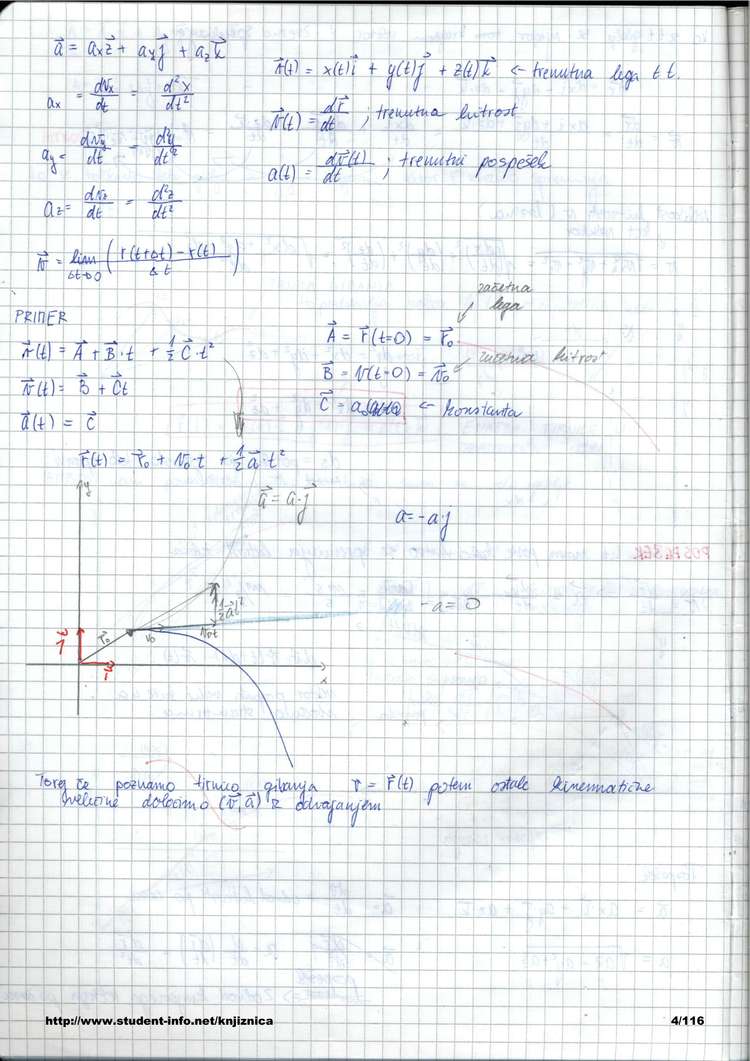 a⃗ = aₓz⃗ + a_y j⃗ + a_z k⃗
aₓ = dvₓ/dt = d²x/dt²
a_y = dv_y/dt = d²y/dt²
a_z = dv_z/dt = d²z/dt²
v⃗ = lim Δt→0 ( r(t+Δt) - r(t) / Δt )
r⃗(t) = x(t)i⃗ + y(t)j⃗ + z(t)k⃗ ← trenutna lega t t.
v⃗(t) = dr⃗/dt ; trenutna hitrost
a(t) = dv⃗(t)/dt ; trenutni pospešek
PRIMER
r⃗(t) = A⃗ + B⃗·t + 1/2 C⃗·t²
v⃗(t) = B⃗ + C⃗t
a⃗(t) = C⃗
začetna
lega
A⃗ = r⃗(t=0) = r⃗₀
B⃗ = v(t=0) = v⃗₀ začetna hitrost
C⃗ = a₀ ← konstanta
r⃗(t) = r⃗₀ + v₀·t + 1/2 a⃗·t²
y
a⃗ = a·j⃗
a = -a·j
1/2 a⃗t²
-a = 0
r⃗₀
v₀
v₀t
j⃗
i⃗
x
Torej če poznamo tirnico gibanja r = r⃗(t) potem ostale kinematične
količine določimo (v⃗, a⃗) z odvajanjem
POSPEŠEK
http://www.student-info.net/knjiznica
4/116